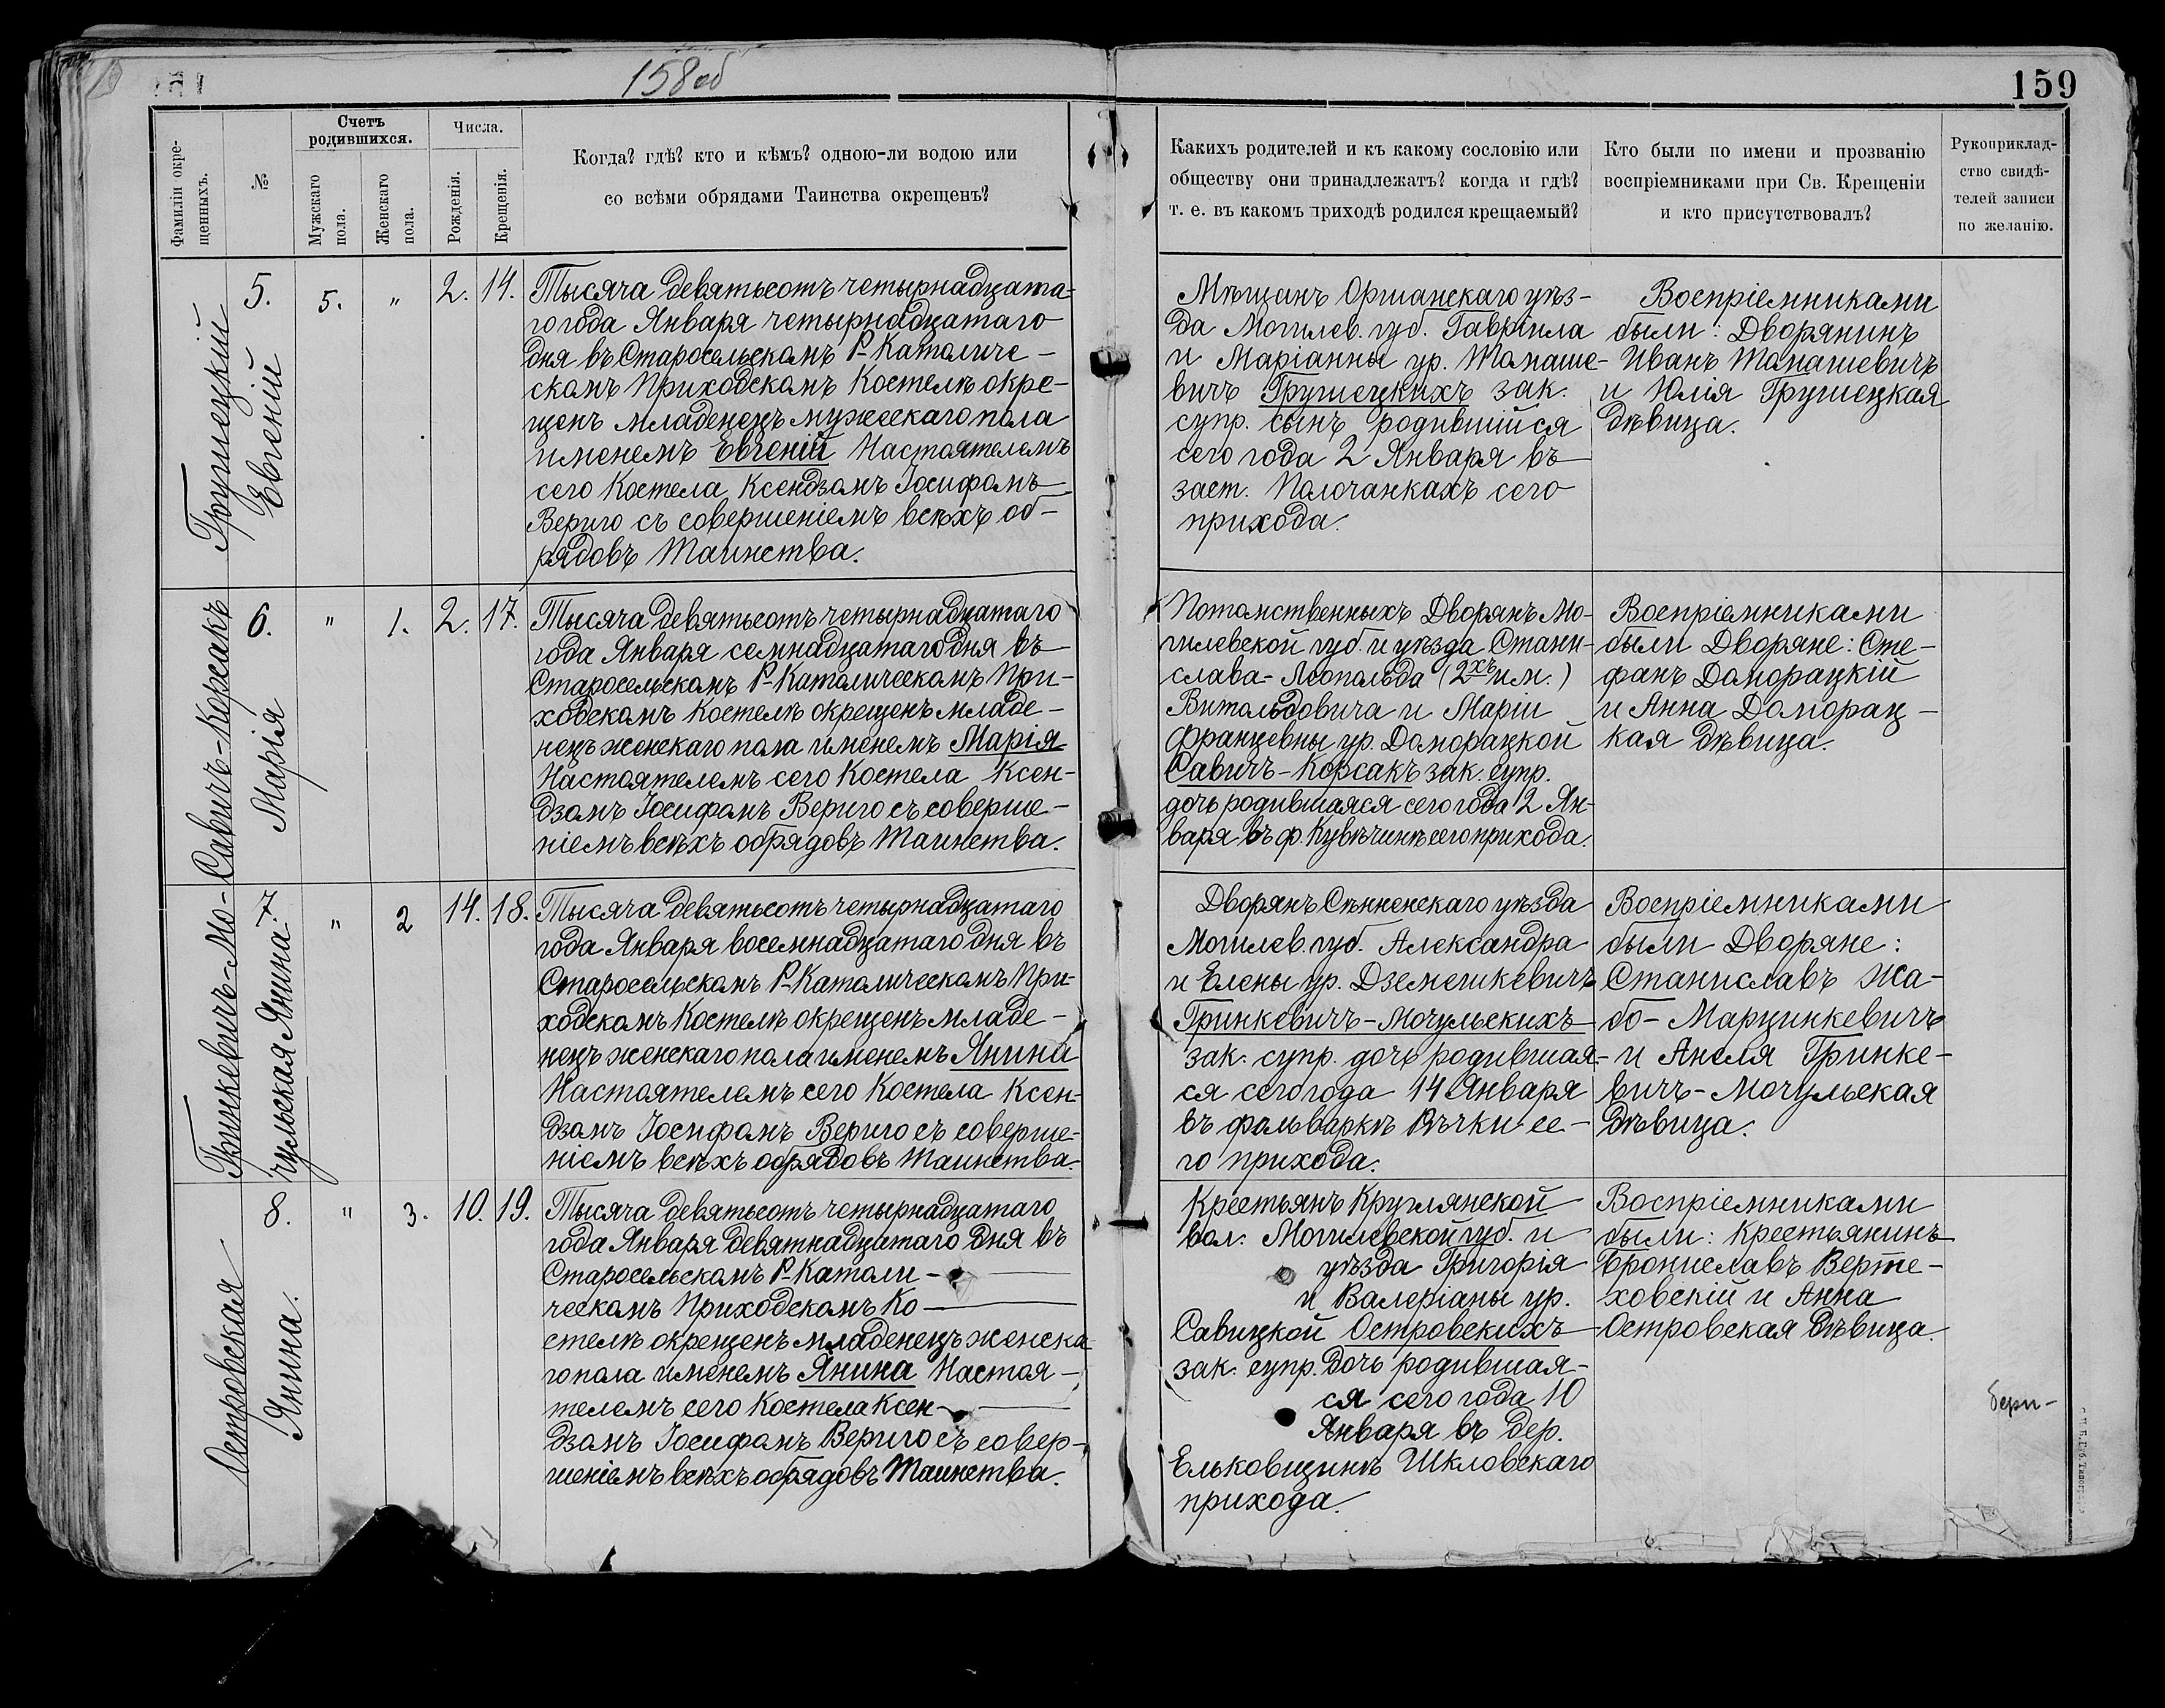 158об
159
Фамиліи окре-
щенныхъ.
№
Счетъ
родившихся.
Мужскаго
пола.
Женскаго
пола.
Числа.
Рожденія.
Крещенія.
Когда? гдѣ? кто и кѣмъ? одною-ли водою или
со всѣми обрядами Таинства окрещенъ?
Какихъ родителей и къ какому сословію или
обществу они принадлежатъ? когда и гдѣ?
т. е. въ какомъ приходѣ родился крещаемый?
Кто были по имени и прозванію
воспріемниками при Св. Крещеніи
и кто присутствовалъ?
Рукоприклад-
ство свидѣ-
телей записи
по желанію.
Грушецкій
Евгеній
5. 5. " 2. 14.
Тысяча девятьсотъ четырнадцата-
го года Января четырнадцатаго
дня въ Старосельскомъ Р-Католиче-
скомъ Приходскомъ Костелѣ окре-
щенъ младенецъ мужескаго пола
именемъ Евгеній Настоятелемъ
сего Костела Ксендзомъ Іосифомъ
Вериго съ совершеніемъ всѣхъ об-
рядовъ Таинства.
Мѣщанъ Оршанскаго уѣз-
да Могилев. губ. Гавріила
и Маріанны ур. Томаше-
вичъ Грушецкихъ зак.
супр. сынъ родившійся
сего года 2 Января въ
заст. Полочанкахъ сего
прихода.
Воспріемниками
были: Дворянинъ
Иванъ Томашевичъ
и Юлія Грушецкая
дѣвица.
Савичъ-Корсакъ
Марія
6. " 1. 2. 17.
Тысяча девятьсотъ четырнадцатаго
года Января семнадцатаго дня въ
Старосельскомъ Р-Католическомъ При-
ходскомъ Костелѣ окрещенъ младе-
нецъ женскаго пола именемъ Марія
Настоятелемъ сего Костела Ксен-
дзомъ Іосифомъ Вериго съ соверше-
ніемъ всѣхъ обрядовъ Таинства.
Потомственныхъ Дворянъ Мо-
гилевской губ. и уѣзда Стани-
слава-Леопольда (2хъ им.)
Витольдовича и Маріи
Францевны ур. Доморацкой
Савичъ-Корсакъ зак. супр.
дочь родившаяся сего года 2 Ян-
варя въ ф. Кувѣчинѣ сего прихода.
Воспріемниками
были Дворяне: Сте-
фанъ Доморацкій
и Анна Доморац-
кая дѣвица.
Гринкевичъ-Мо-
чульская Янина
7 " 2 14. 18.
Тысяча девятьсотъ четырнадцатаго
года Января восемнадцатаго дня въ
Старосельскомъ Р-Католическомъ При-
ходскомъ Костелѣ окрещенъ младе-
нецъ женскаго пола именемъ Янина
Настоятелемъ сего Костела Ксен-
дзомъ Іосифомъ Вериго съ соверше-
ніемъ всѣхъ обрядовъ Таинства.
Дворянъ Сѣнненскаго уѣзда
Могилев. губ. Александра
и Елены ур. Дземешкевичъ
Гринкевичъ-Мочульскихъ
зак. супр. дочь родившая-
ся сего года 14 Января
въ фольваркѣ Рѣчки се-
го прихода.
Воспріемниками
были Дворяне:
Станиславъ Жа-
бо-Марцинкевичъ
и Анеля Гринке-
вичъ-Мочульская
дѣвица.
Островская
Янина.
8. " 3. 10. 19.
Тысяча девятьсотъ четырнадцатаго
года Января девятнадцатаго дня въ
Старосельскомъ Р-Католи-
ческомъ Приходскомъ Ко-
стелѣ окрещенъ младенецъ женска
го пола именемъ Янина Настоя-
телемъ сего Костела Ксен-
дзомъ Іосифомъ Вериго съ совер-
шеніемъ всѣхъ обрядовъ Таинства.
Крестьянъ Круглянской
вол. Могилевской губ. и
уѣзда Григорія
и Валеріаны ур.
Савицкой Островскихъ
зак. супр. дочь родившая-
ся сего года 10
Января въ дер.
Ельковщинѣ Шкловскаго
прихода.
Воспріемниками
были: Крестьянинъ
Брониславъ Верте-
ховскій и Анна
Островская дѣвица.